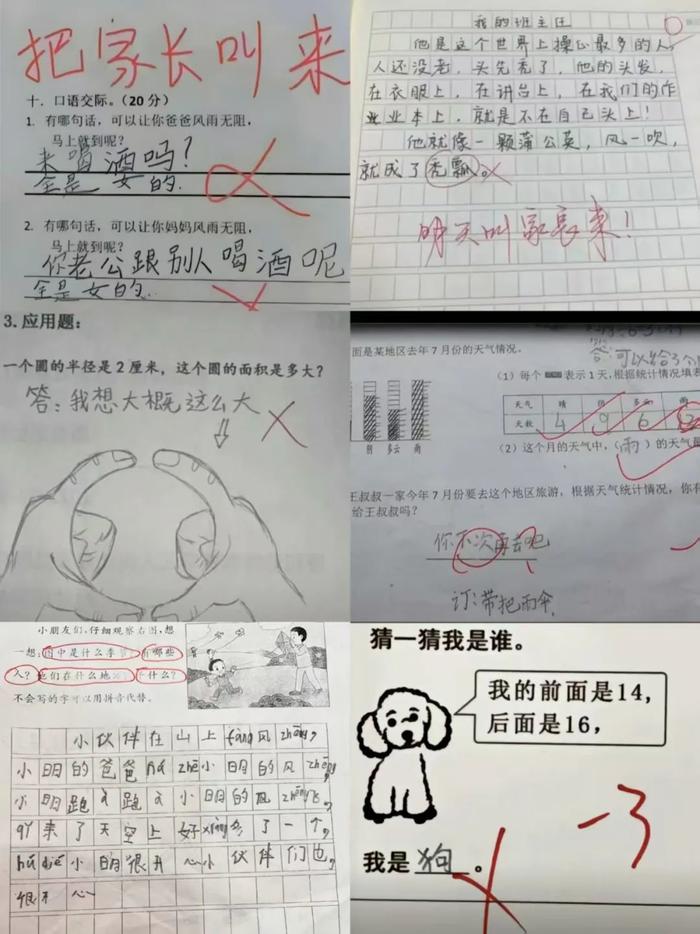 把家长叫来
十. 口语交际。（20 分）
1. 有哪句话，可以让你爸爸风雨无阻，
马上就到呢？
来喝酒吗？
全是女的.
2. 有哪句话，可以让你妈妈风雨无阻，
马上就到呢？
你老公跟别人喝酒呢
全是女的.
我的班主任
他是这个世界上操心最多的人，
人还没老，头先秃了，他的头发，
在衣服上，在讲台上，在我们的作
业业本上，就是不在自己头上！
他就像一颗蒲公英，风一吹，
就成了秃瓢。
明天叫家长来！
3. 应用题：
一个圆的半径是 2 厘米，这个圆的面积是多大？
答：我想大概这么大
面是某地区去年 7 月份的天气情况。
阴 多云 雨
答：可以给3个
（1）每个 表示 1 天，根据统计情况填表
天气 晴 阴 多云 雨
天数 4 9 6
（2）这个月的天气中，（雨）的天气
王叔叔一家今年 7 月份要去这个地区旅游，根据天气统计情况，你有
给王叔叔吗？
你下次再去吧
订：带把雨伞
小朋友们，仔细观察右图，想
一想：图中是什么季节？有哪些
人？他们在什么地方？干什么？
不会写的字可以用拼音代替。
小伙伴在山上fàng风zhēng，
小明的爸爸ná zhe小明的风zhēng
小明跑 跑 小明的风zhēng飞
来了天空上好xiàng多了一个
小明很开心小伙伴们也
很开心
猜一猜我是谁。
我的前面是14，
后面是16，
我是狗。
-3